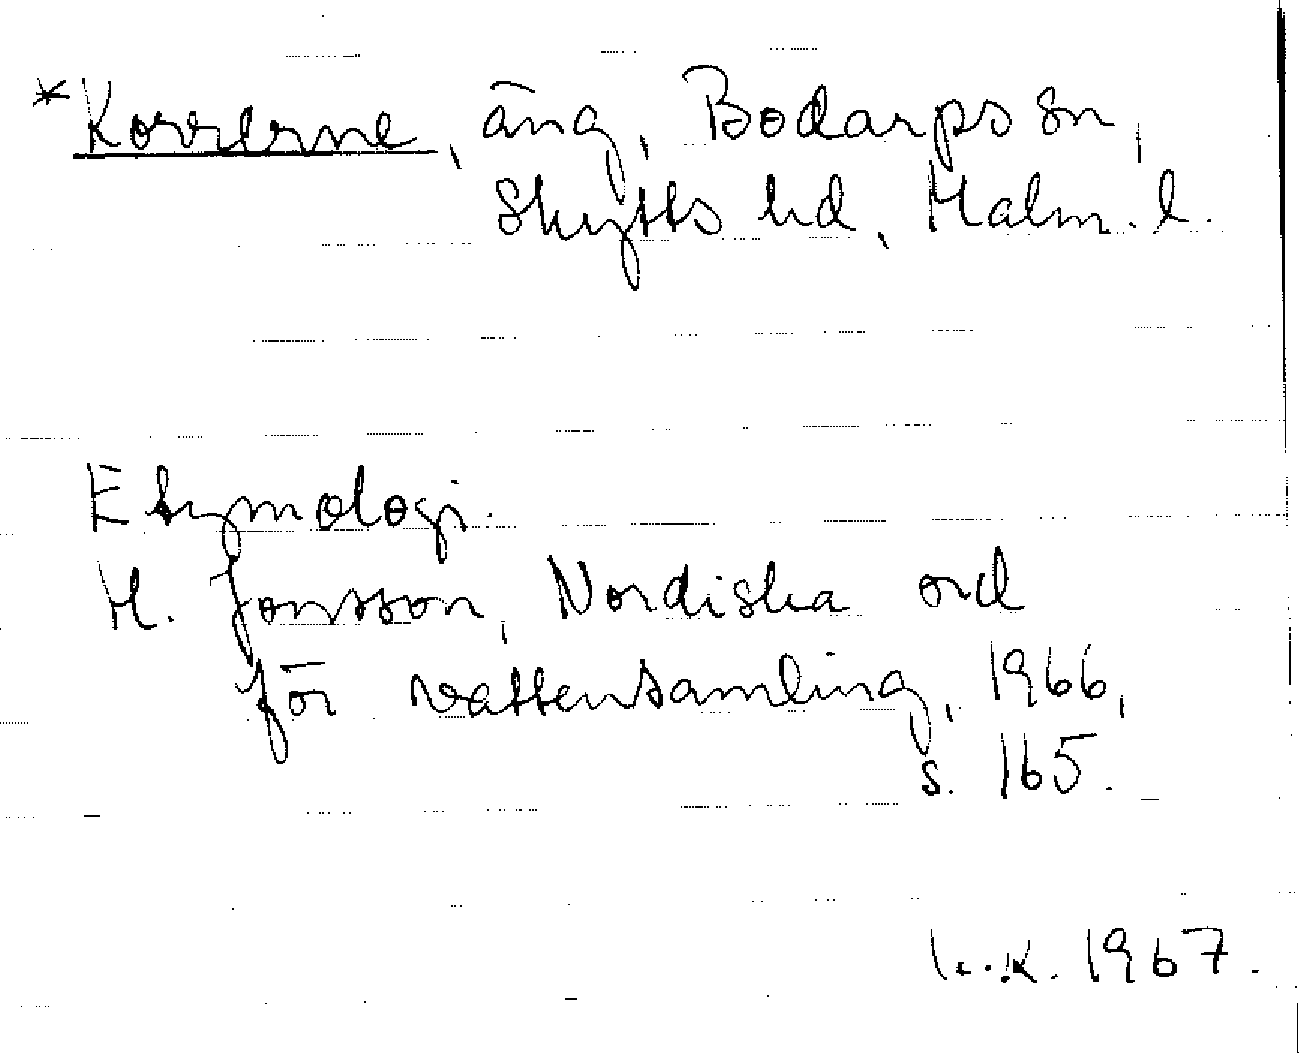 *Korrerne, äng, Bodarps sn,
Skytts hd, Malm. l.
Etymologi.
H. Jonsson, Nordiska ord
för vattensamling, 1966,
s. 165.
1967.